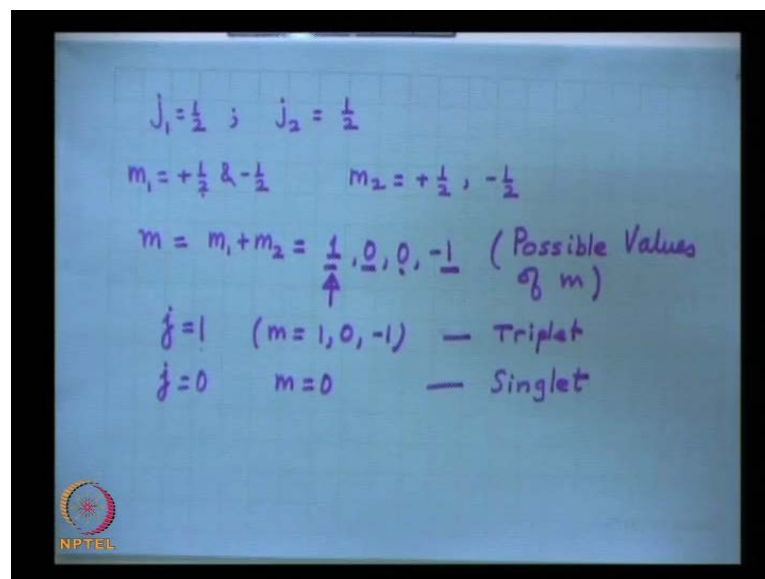 j₁ = ½ ; j₂ = ½
m₁ = +½ & -½ m₂ = +½ , -½
m = m₁ + m₂ = 1 , 0 , 0 , -1 (Possible Values of m)
j = 1 (m = 1, 0, -1) — Triplet
j = 0 m = 0 — Singlet
NPTEL